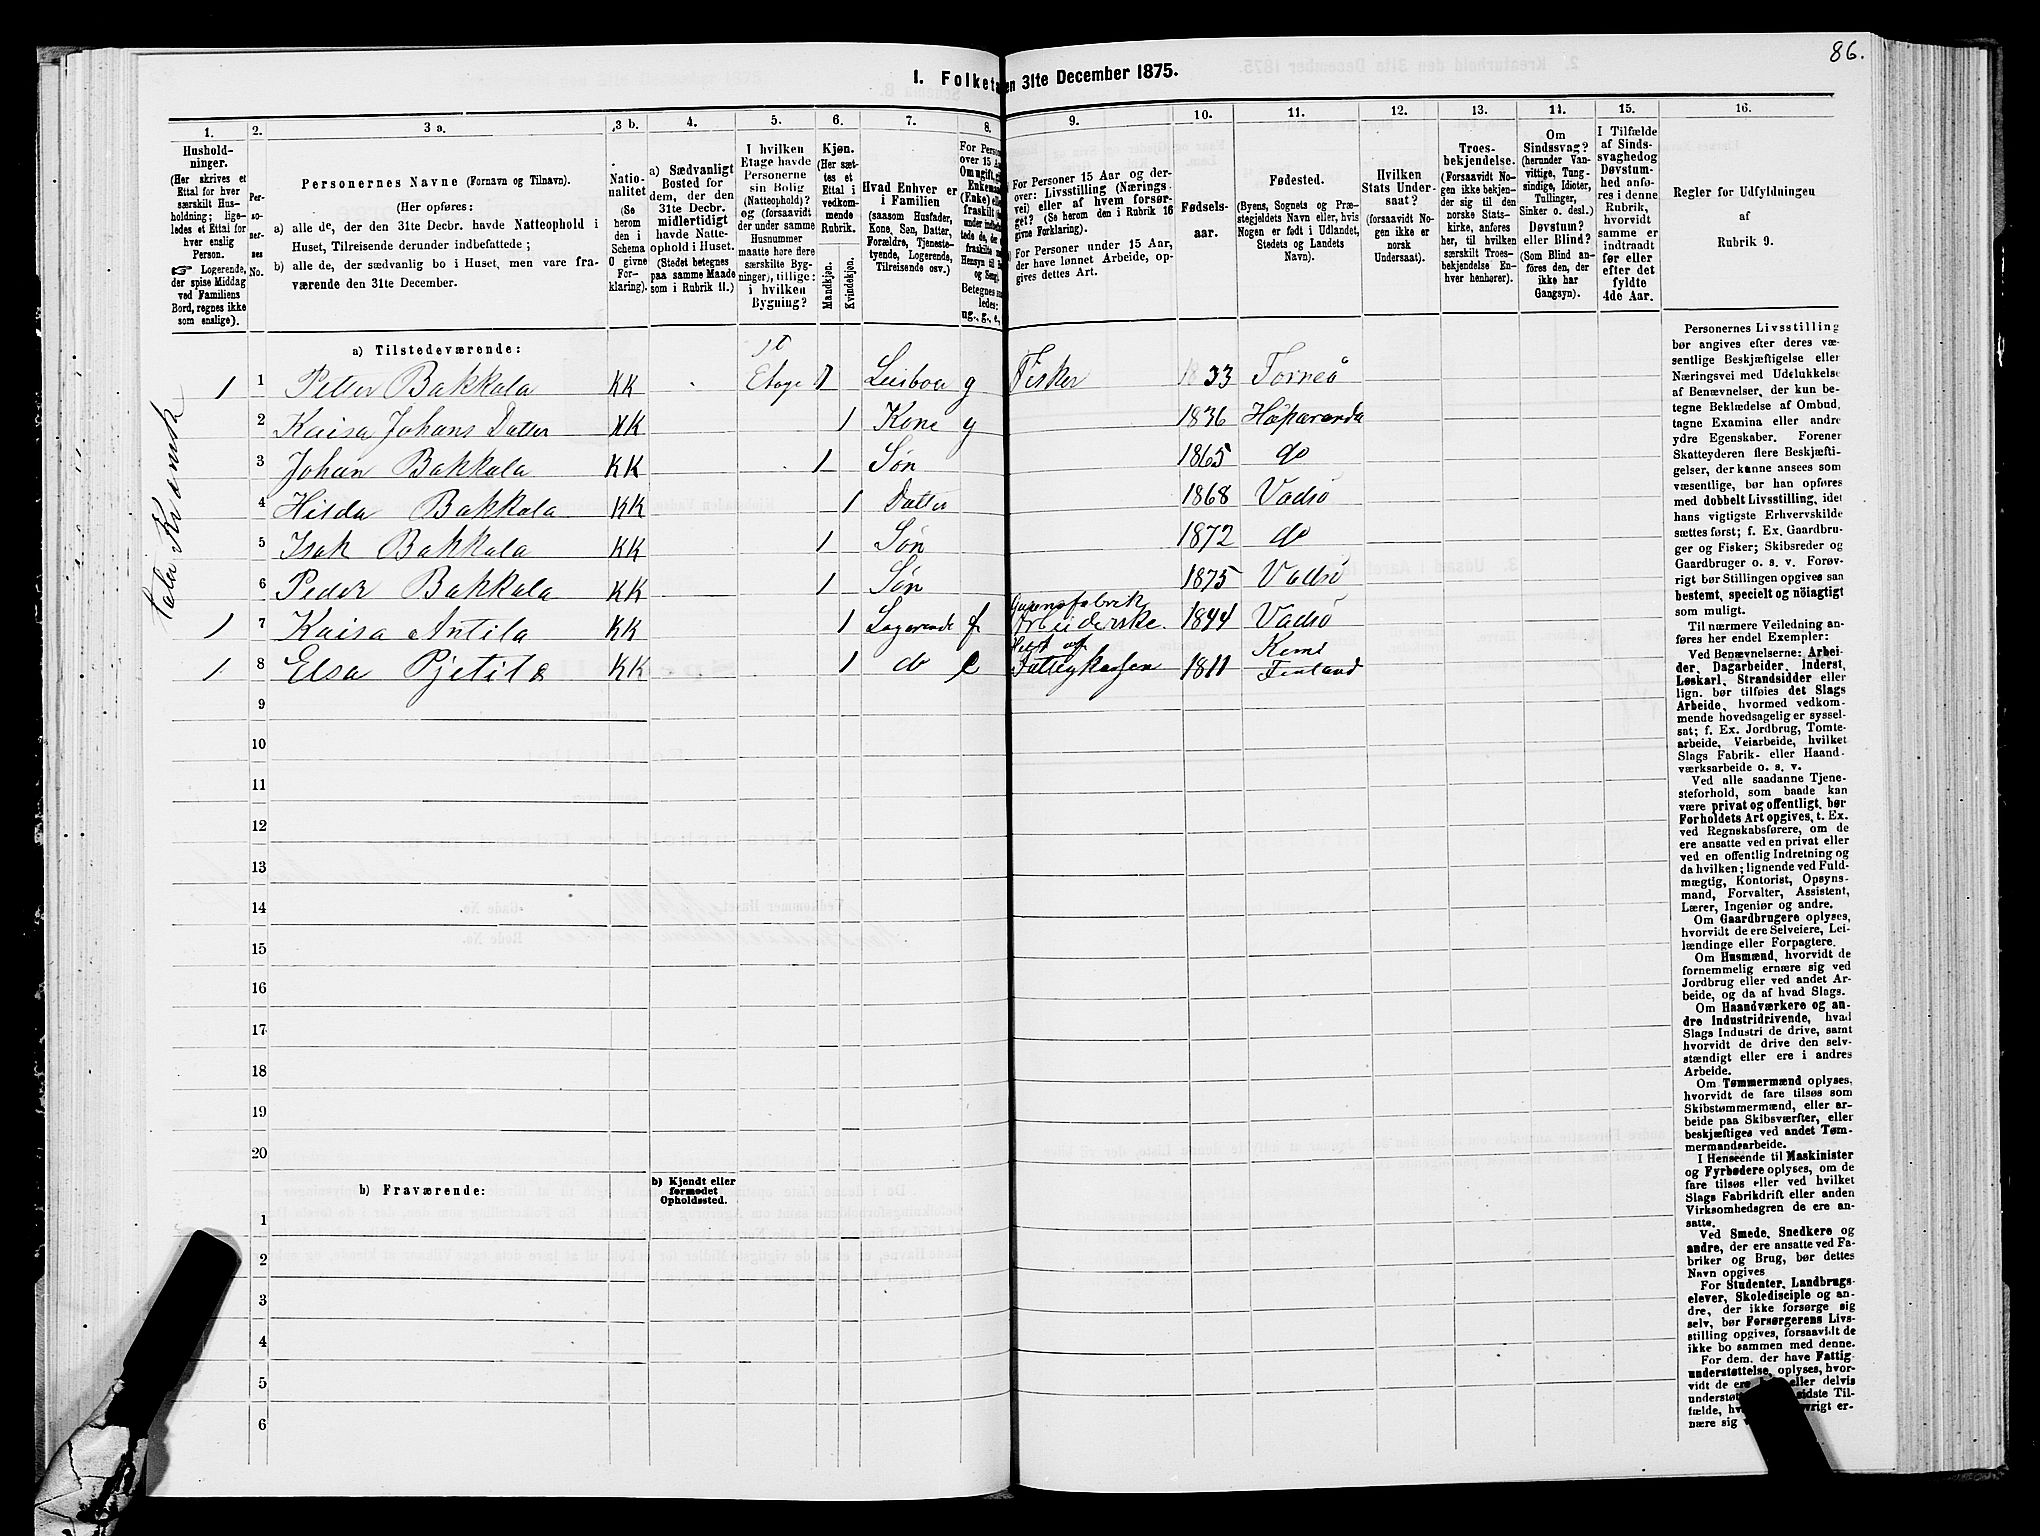 86.
I. Folketa en 31te December 1875.
1. 2. 3 a. 3 b. 4. 5. 6. 7. 8. 9. 10. 11. 12. 13. 14. 15. 16.
Hushold-
ninger.
(Her skrives et
Ettal for hver
særskilt Hus-
holdning; lige-
ledes et Ettal for
hver enslig
Person.
☞ Logerende,
der spise Middag
ved Familiens
Bord, regnes ikke
som enslige).
Per-
so-
ner-
nes
No.
Personernes Navne (Fornavn og Tilnavn).
(Her opføres:
a) alle de, der den 31te Decbr. havde Natteophold i
Huset, Tilreisende derunder indbefattede;
b) alle de, der sædvanlig bo i Huset, men vare fra-
værende den 31te December.
Natio-
nalitet
(Se
herom
den i
Schema
O givne
For-
klaring).
a) Sædvanligt
Bosted for
dem, der den
31te Decbr.
midlertidigt
havde Natte-
ophold i Huset.
(Stedet betegnes
paa samme Maade
som i Rubrik 11.)
I hvilken
Etage havde
Personerne
sin Bolig
(Natteophold)?
og (forsaavidt
der under samme
Husnummer
maatte høre flere
særskilte Byg-
ninger), tillige:
i hvilken
Bygning?
Kjøn.
(Her sæt-
tes et
Ettal i
vedkom-
mende
Rubrik.)
Mandkjøn.
Kvindekjøn.
Hvad Enhver er
i Familien
(saasom Husfader,
Kone, Søn, Datter,
Forældre, Tjeneste-
tyende, Logerende,
Tilreisende osv.)
For Person
over 15 Aar
Om ugift, gi
Enkema
(Enke) elle
fraskilt
Betegnes
ledes:
ug., g., e.,
For Personer 15 Aar og der-
over: Livsstilling (Nærings-
vei) eller af hvem forsør-
get? (Se herom den i Rubrik 16
givne Forklaring).
For Personer under 15 Aar,
der have lønnet Arbeide, op-
gives dettes Art.
Fødsels-
aar.
Fødested.
(Byens, Sognets og Præ-
stegjeldets Navn eller, hvis
Nogen er født i Udlandet,
Stedets og Landets
Navn).
Hvilken
Stats Under-
saat?
(forsaavidt No-
gen ikke er
norsk
Undersaat).
Troes-
bekjendelse.
(Forsaavidt No-
gen ikke bekjen-
der sig til den
norske Stats-
kirke, anføres
her, til hvilken
særskilt Troes-
bekjendelse En-
hver henhører).
Om
Sindssvag?
(herunder Van-
vittige, Tung-
sindige, Idioter,
Tullinger,
Sinker o. desl.)
Døvstum?
eller Blind?
(Som Blind an-
føres den, der
ikke har
Gangsyn).
I Tilfælde
af Sinds-
svaghed og
Døvstum-
hed anfø-
res i denne
Rubrik,
hvorvidt
samme er
indtraadt
før eller
efter det
fyldte
4de Aar.
Regler for Udfyldningen
af
Rubrik 9.
a) Tilstedeværende:
1 1 Petter Bakkala KK 1st Etage 1 g Fisker 33 Torneå
2 Kaisa Johans Datter KK 1 Kone g 1836 Haparanda
3 Johan Bakkala KK 1 Søn 1865 do
4 Hilda Bakkala KK 1 Datter 1868 Vadsø
5 Isak Bakkala KK 1 Søn 1872 do
6 Peder Bakkala KK 1 Søn 1875 Vadsø
1 7 Kaisa Antila KK 1 Logerende Guanofabrik Arbeiderske. 1844 Vadsø
1 8 Elsa Pjetilæ KK 1 do e Helt af Fattigkassen 1811 Kemi Finland
9
10
11
12
13
14
15
16
17
18
19
20
b) Fraværende:
b) Kjendt eller
formodet
Opholdssted.
1
2
3
4
5
6
Personernes Livsstilling
bør angives efter deres væ-
sentlige Beskjæftigelse eller
Næringsvei med Udelukkelse
af Benævnelser, der kun be-
tegne Beklædelse af Ombud,
tagne Examina eller andre
ydre Egenskaber. Forener
Skatteyderen flere Beskjæfti-
gelser, der kunne ansees som
væsentlige, bør han opføres
med dobbelt Livsstilling, idet
hans vigtigste Erhvervskilde
sættes først; f. Ex. Gaardbru-
ger og Fisker; Skibsreder og
Gaardbruger o. s. v. Forøv-
rigt bør Stillingen opgives saa
bestemt, specielt og nöiagtigt
som muligt.
Til nærmere Veiledning an-
føres her endel Exempler:
Ved Benævnelserne: Arbei-
der, Dagarbeider, Inderst,
Løskarl, Strandsidder eller
lign. bør tilføies det Slags
Arbeide, hvormed vedkom-
mende hovedsagelig er syssel-
sat; f. Ex. Jordbrug, Tomte-
arbeide, Veiarbeide, hvilket
Slags Fabrik- eller Haand-
værksarbeide o. s. v.
Ved alle saadanne Tjene-
steforhold, som baade kan
være privat og offentligt, bør
Forholdets Art opgives, t. Ex.
ved Regnskabsførere, om de
ere ansatte ved en privat eller
ved en offentlig Indretning og
da hvilken; lignende ved Fuld-
mægtig, Kontorist, Opsyns-
mand, Forvalter, Assistent,
Lærer, Ingeniør og andre.
Om Gaardbrugere oplyses,
hvorvidt de ere Selveiere, Lei-
lændinge eller Forpagtere.
Om Husmænd, hvorvidt de
fornemmelig ernære sig ved
Jordbrug eller ved andet Ar-
beide, og da af hvad Slags.
Om Haandværkere og an-
dre Industridrivende, hvad
Slags Industri de drive, samt
hvorvidt de drive den selv-
stændigt eller ere i andres
Arbeide.
Om Tømmermænd oplyses,
hvorvidt de fare tilsøs som
Skibstømmermænd, eller ar-
beide paa Skibsværfter, eller
beskjæftiges ved andet Tøm-
mermandsarbeide.
I Henseende til Maskinister
og Fyrbødere oplyses, om de
fare tilsøs eller ved hvilket
Slags Fabrikdrift eller anden
Virksomhedsgren de ere an-
satte.
Ved Smede, Snedkere og
andre, der ere ansatte ved Fa-
briker og Brug, bør dettes
Navn opgives
For Studenter, Landbrugs-
elever, Skoledisciple og an-
dre, der ikke forsørge sig
selv, bør Forsørgerens Livs-
stilling opgives, forsaavidt de
ikke bo sammen med denne.
For dem, der have Fattig-
understøttelse, oplyses, hvor-
vidt de ere eller delvis
understøt sidste Til-
fælde, hv vrigt er-
nære sig